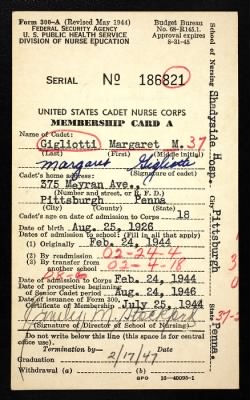 Form 300-A (Revised May 1944)
FEDERAL SECURITY AGENCY
U. S. PUBLIC HEALTH SERVICE
DIVISION OF NURSE EDUCATION
Budget Bureau
No. 68-R145.1
Approval expires
8-31-45
SERIAL No 186821
UNITED STATES CADET NURSE CORPS
MEMBERSHIP CARD A
Name of Cadet:
Gigliotti Margaret M. 37
(Last) (First) (Middle initial)
Margaret Gigliotti
(Signature of cadet)
Cadet's home address:
375 Meyran Ave.,
(Number and street, or R. F. D.)
Pittsburgh Penna
(City) (County) (State)
Cadet's age on date of admission to Corps 18
Date of birth Aug. 25, 1926
Dates of admission to school: (Fill in all that apply)
(1) Originally Feb. 24, 1944
(2) By readmission 02-24-4
(3) By transfer from another school 02-4-18
Date of admission to Corps Feb. 24, 1944
Date of prospective beginning
of Senior Cadet period Aug. 24, 1946
Date of issuance of Form 300,
Certificate of Membership July 25, 1944
(Signature of Director of School of Nursing)
Do not write below this line (this space is for central
office use).
Termination by— Date
Graduation 2/17/47
Withdrawal (a) (b)
GPO 16-40093-1
School of Nursing Shadyside Hosp. City Pittsburgh State Penna.